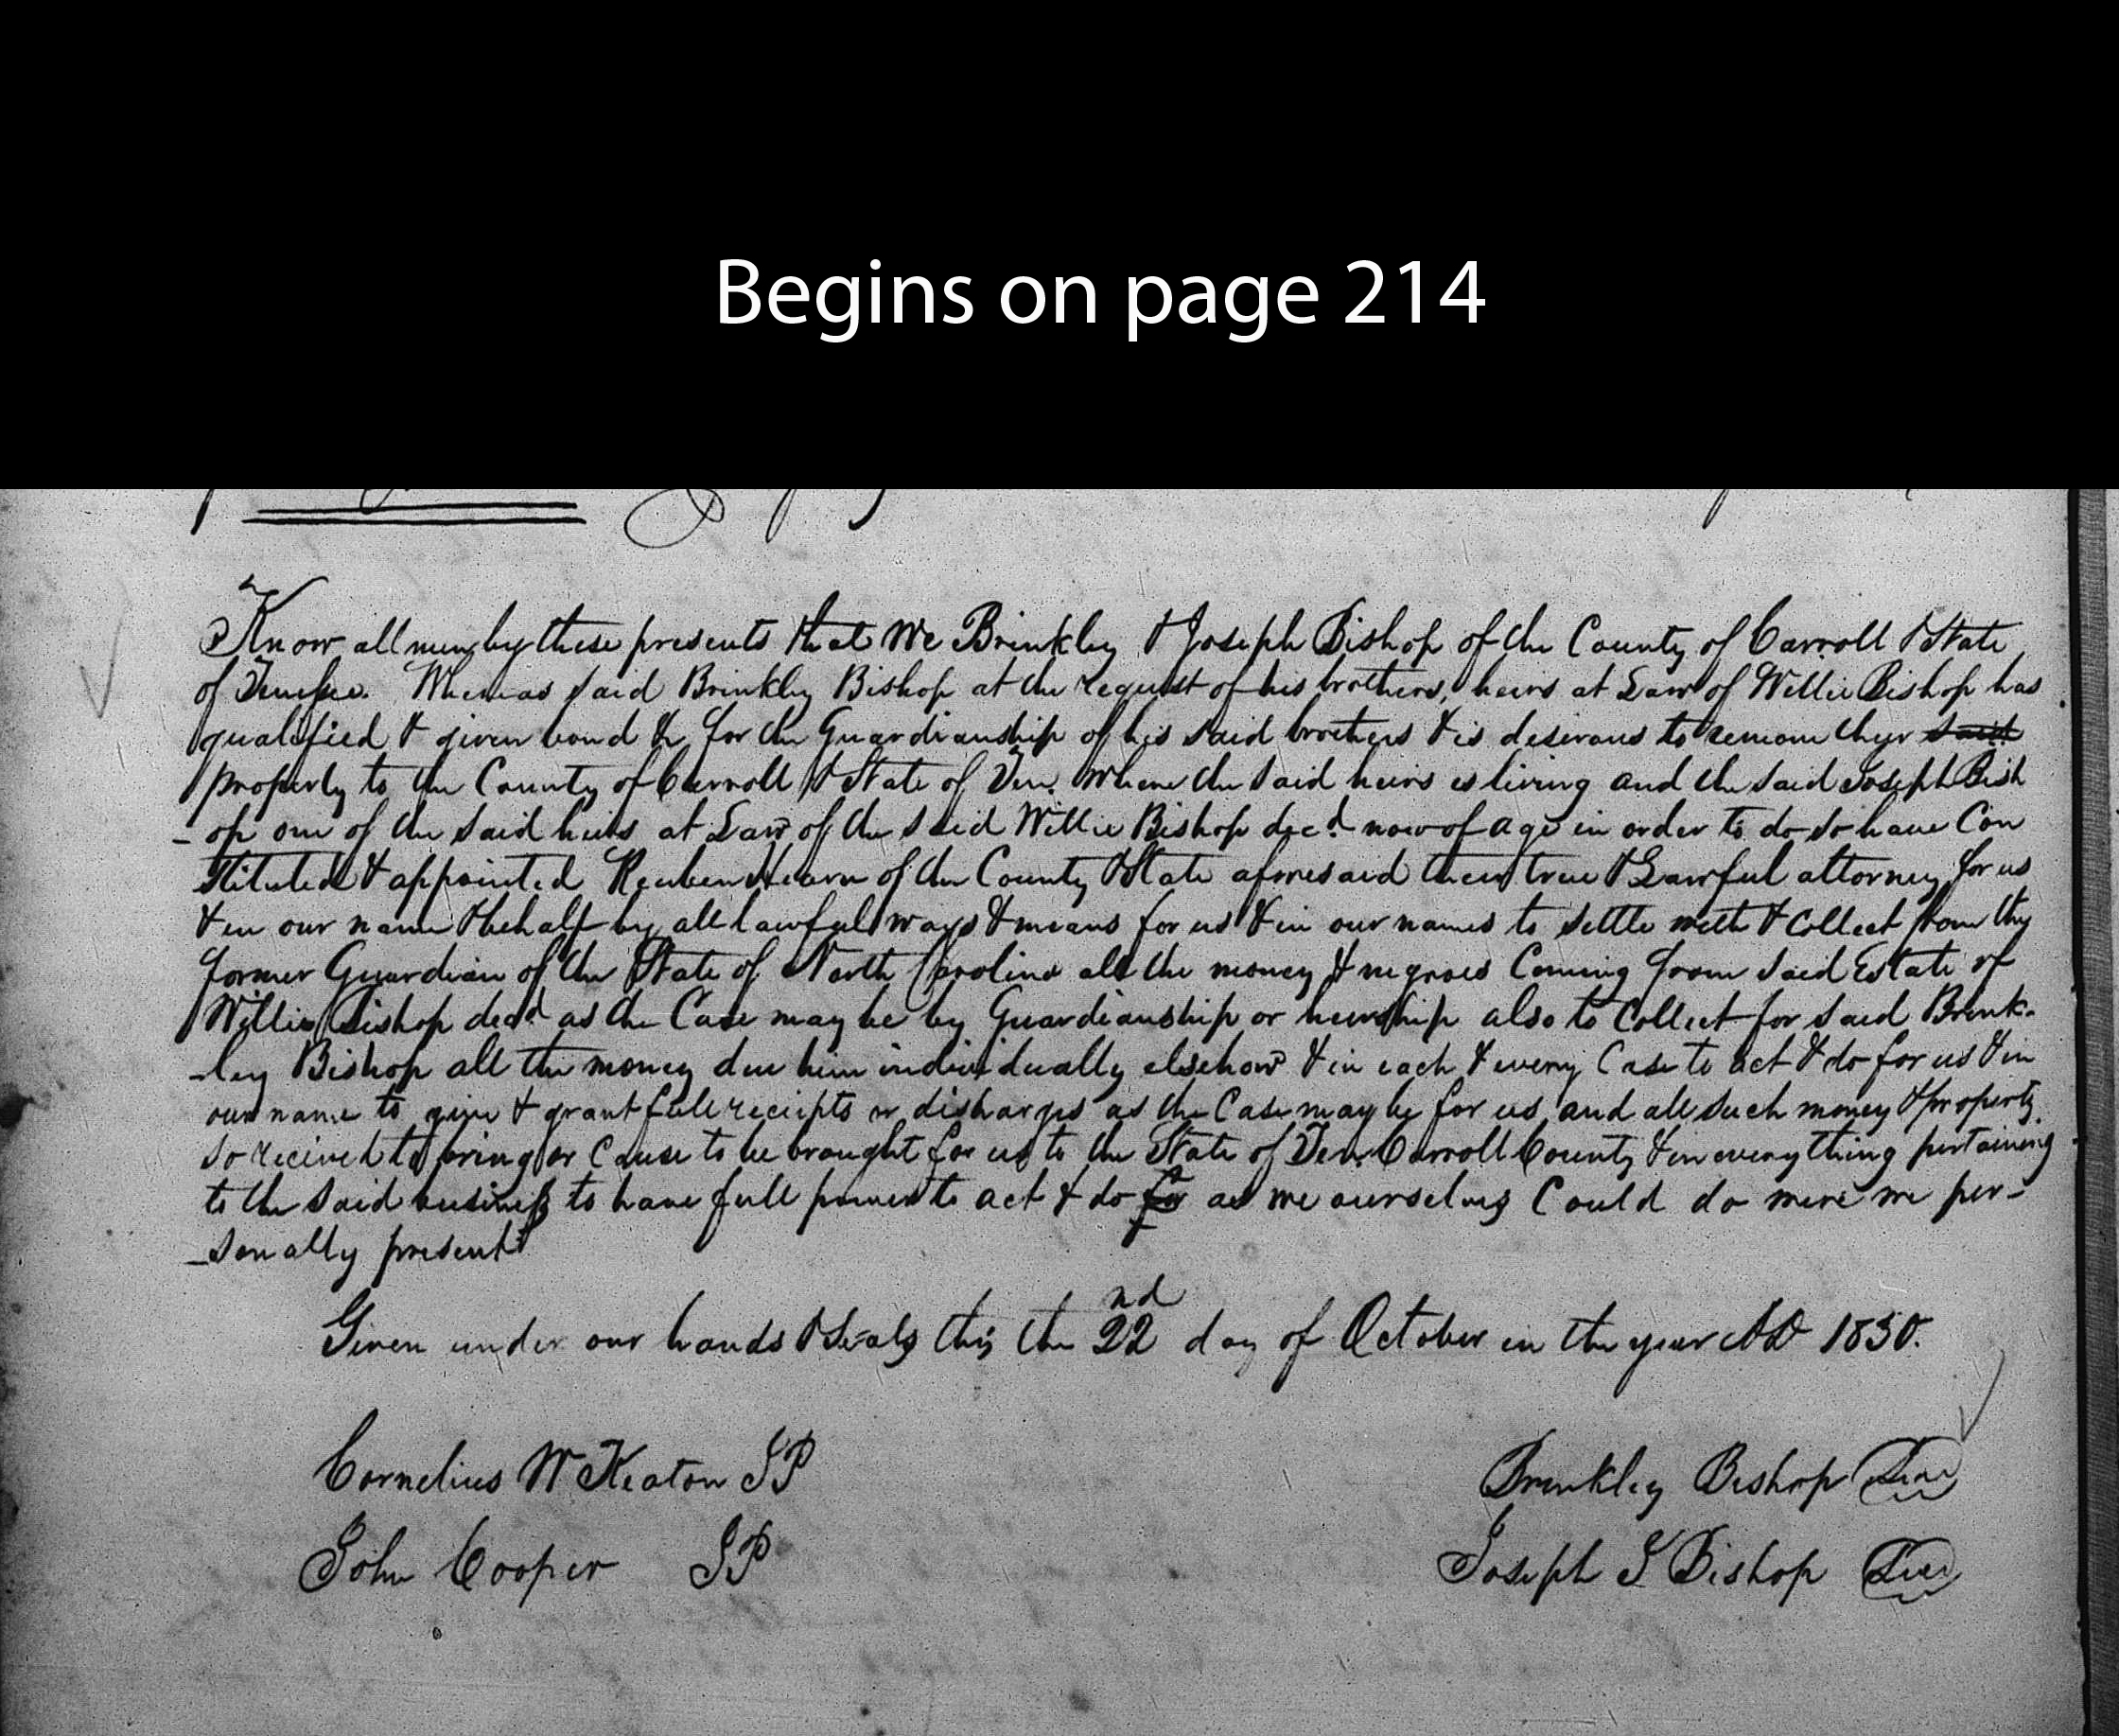 Begins on page 214
Know all men by these presents that We Brinkley & Joseph Bishop of the County of Carroll & State
of Tennessee. Whereas said Brinkley Bishop at the request of his brothers, heirs at Law of Willie Bishop has
qualified & given bond &c for the Guardianship of his said brothers & is desirous to remove they said
property to the County of Carroll & State of Ten. Where the said heirs is living and the said Joseph Bish
-op one of the said heirs at Law of the said Willie Bishop decd. now of age in order to do so have Con
stituted & appointed Reuben Hearn of the County & State aforesaid their true & Lawful attorney for us
& in our name & behalf by all lawful ways & means for us & in our names to settle with & Collect from the
former Guardian of the State of North Carolina all the money & negroes Coming from said Estate of
Willie Bishop decd as the Case may be by Guardianship or heirship also to Collect for said Brink-
-ley Bishop all the money due him individually elsehow & in each & every Case to act & do for us & in
our name to give & grant full reciepts or discharges as the Case may be for us and all such money & property
so recieved to bring or Cause to be brought for us to the State of Ten. Carroll County & in everything pertaining
to the said business to have full power to act & do for as we ourselves Could do were we per-
-sonally present
Given under our hands & seals this the 22nd day of October in the year AD 1830.
Cornelius W Keaton JP
Brinkley Bishop Seal
John Cooper JP
Joseph J Bishop Seal